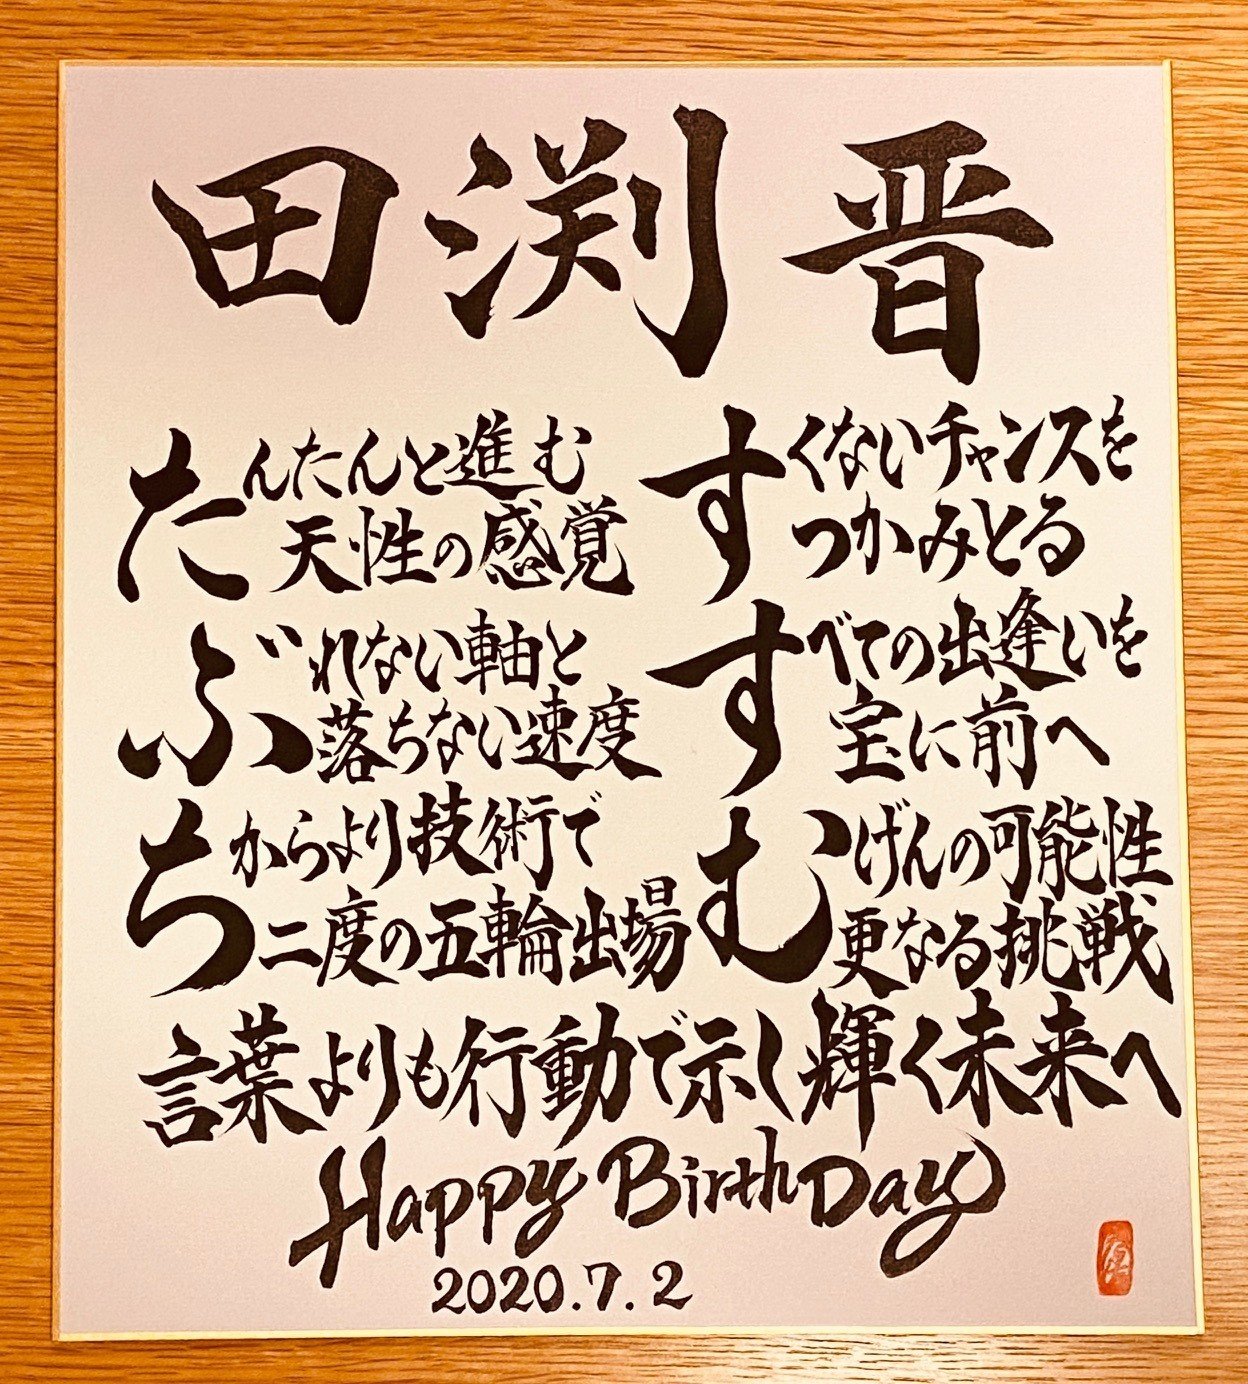 田渕 晋
たんたんと進む
天性の感覚
ぶれない軸と
落ちない速度
ちからより技術で
二度の五輪出場
すくないチャンスを
つかみとる
すべての出逢いを
宝に前へ
むげんの可能性
更なる挑戦
言葉よりも行動で示し輝く未来へ
Happy BirthDay
2020.7.2